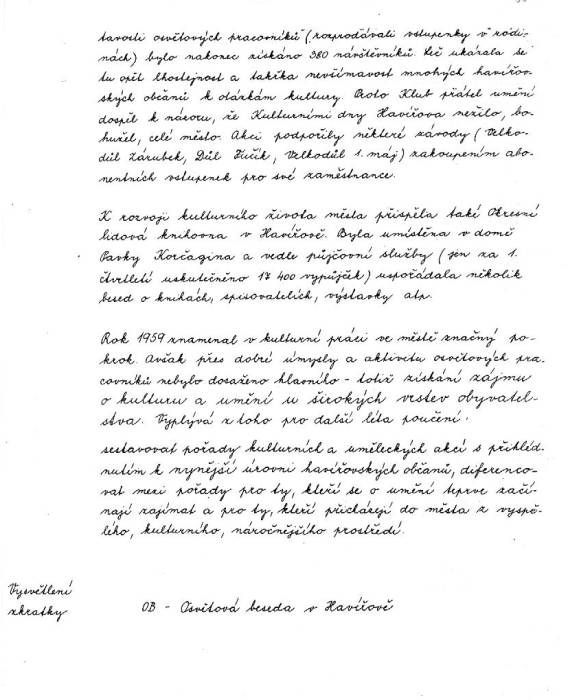 tarosti osvětových pracovníků (rozprodávali vstupenky v rodi-
nách) bylo nakonec získáno 380 návštěvníků. Leč ukázala se
tu opět lhostejnost a takřka nevšímavost mnohých havířov-
ských občanů k otázkám kultury. Proto Klub přátel umění
dospěl k názoru, že Kulturními dny Havířova nežilo, bo-
hužel, celé město. Akci podpořily některé závody (Velko-
důl Zárubek, Důl Fučík, Velkodůl 1. máj) zakoupením abo-
nentních vstupenek pro své zaměstnance.
K rozvoji kulturního života města přispěla také Okresní
lidová knihovna v Havířově. Byla umístěna v domě
Pavky Korčagina a vedle půjčovní služby (jen za 1.
čtvrtletí uskutečněno 17 400 výpůjček) uspořádala několik
besed o knihách, spisovatelích, výstavky atp.
Rok 1959 znamenal v kulturní práci ve městě značný po-
krok. Avšak přes dobré úmysly a aktivitu osvětových pra-
covníků nebylo dosaženo hlavního - totiž získání zájmu
o kulturu a umění u širokých vrstev obyvatel-
stva. Vyplývá z toho pro další léta poučení:
sestavovat pořady kulturních a uměleckých akcí s přihléd-
nutím k nynější úrovni havířovských občanů, diferenco-
vat mezi pořady pro ty, kteří se o umění teprve začí-
nají zajímat a pro ty, kteří přicházejí do města z vyspě-
lého, kulturního, náročnějšího prostředí.
Vysvětlení
zkratky
OB - Osvětová beseda v Havířově